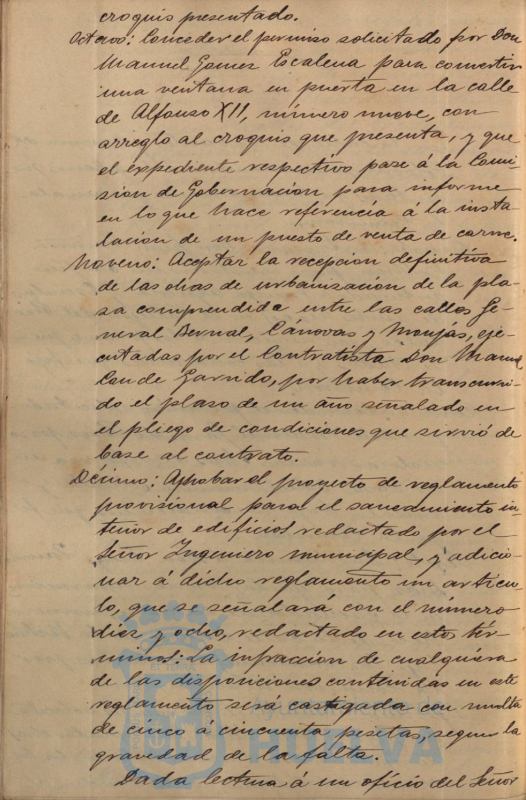 croquis presentado.
Octavo: Conceder el permiso solicitado por Don
Manuel Gomez Escalena para convertir
una ventana en puerta en la calle
de Alfonso XII, número nueve, con
arreglo al croquis que presenta, y que
el expediente respectivo pase á la Comi-
sion de Gobernacion para informe
en lo que hace referencia á la insta-
lacion de un puesto de venta de carne.
Noveno: Aceptar la recepcion definitiva
de las obras de urbanizacion de la pla-
za comprendida entre las calles Ge-
neral Bernal, Cánovas y Monjas, eje-
cutadas por el Contratista Don Manuel
Conde Garrido, por haber transcurri-
do el plazo de un año señalado en
el pliego de condiciones que sirvió de
base al contrato.
Décimo: Aprobar el proyecto de reglamento
provisional para el saneamiento in-
terior de edificios redactado por el
Señor Ingeniero municipal, y adicio-
nar á dicho reglamento un artícu-
lo, que se señalará con el número
diez y ocho, redactado en estos tér-
minos: La infraccion de cualquiera
de las disposiciones contenidas en este
reglamento será castigada con multa
de cinco á cincuenta pesetas, segun la
gravedad de la falta.
Dada lectura á un oficio del Señor